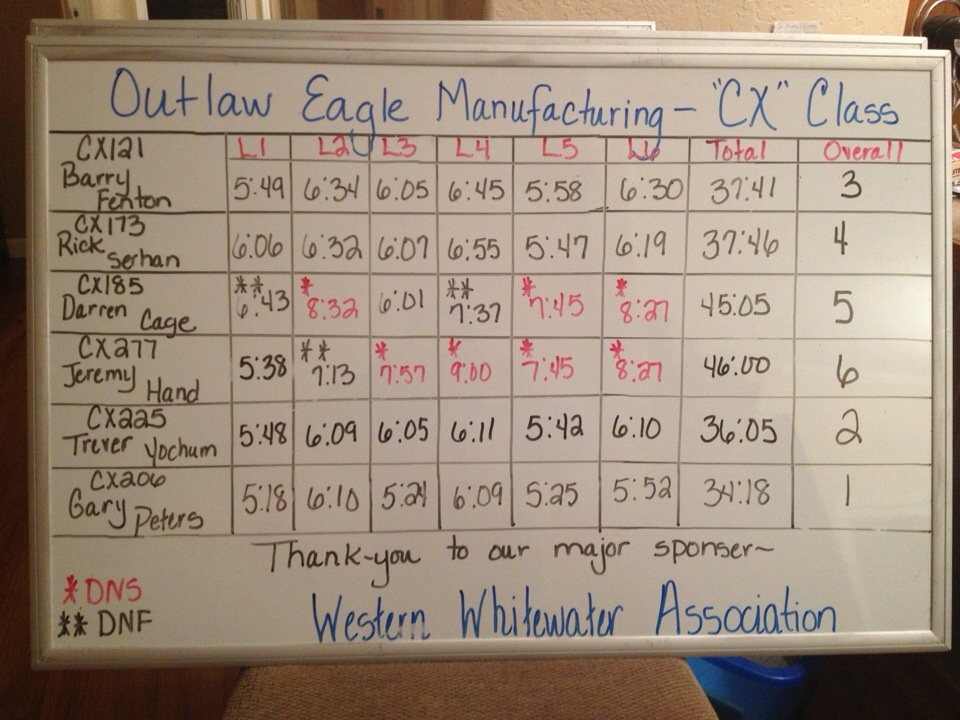 Outlaw Eagle Manufacturing - "CX" Class
CX121 Barry Fenton L1 L2 L3 L4 L5 L6 Total Overall
5:49 6:34 6:05 6:45 5:58 6:30 37:41 3
CX173 Rick Serhan 6:06 6:32 6:07 6:55 5:47 6:19 37:46 4
CX185 Darren Cage **6:43 *8:32 6:01 **7:37 *7:45 *8:27 45:05 5
CX277 Jeremy Hand 5:38 **7:13 *7:57 *9:00 *7:45 *8:27 46:00 6
CX225 Trever Yochum 5:48 6:09 6:05 6:11 5:42 6:10 36:05 2
CX206 Gary Peters 5:18 6:10 5:24 6:09 5:25 5:52 34:18 1
Thank-you to our major sponser~
*DNS
**DNF
Western Whitewater Association